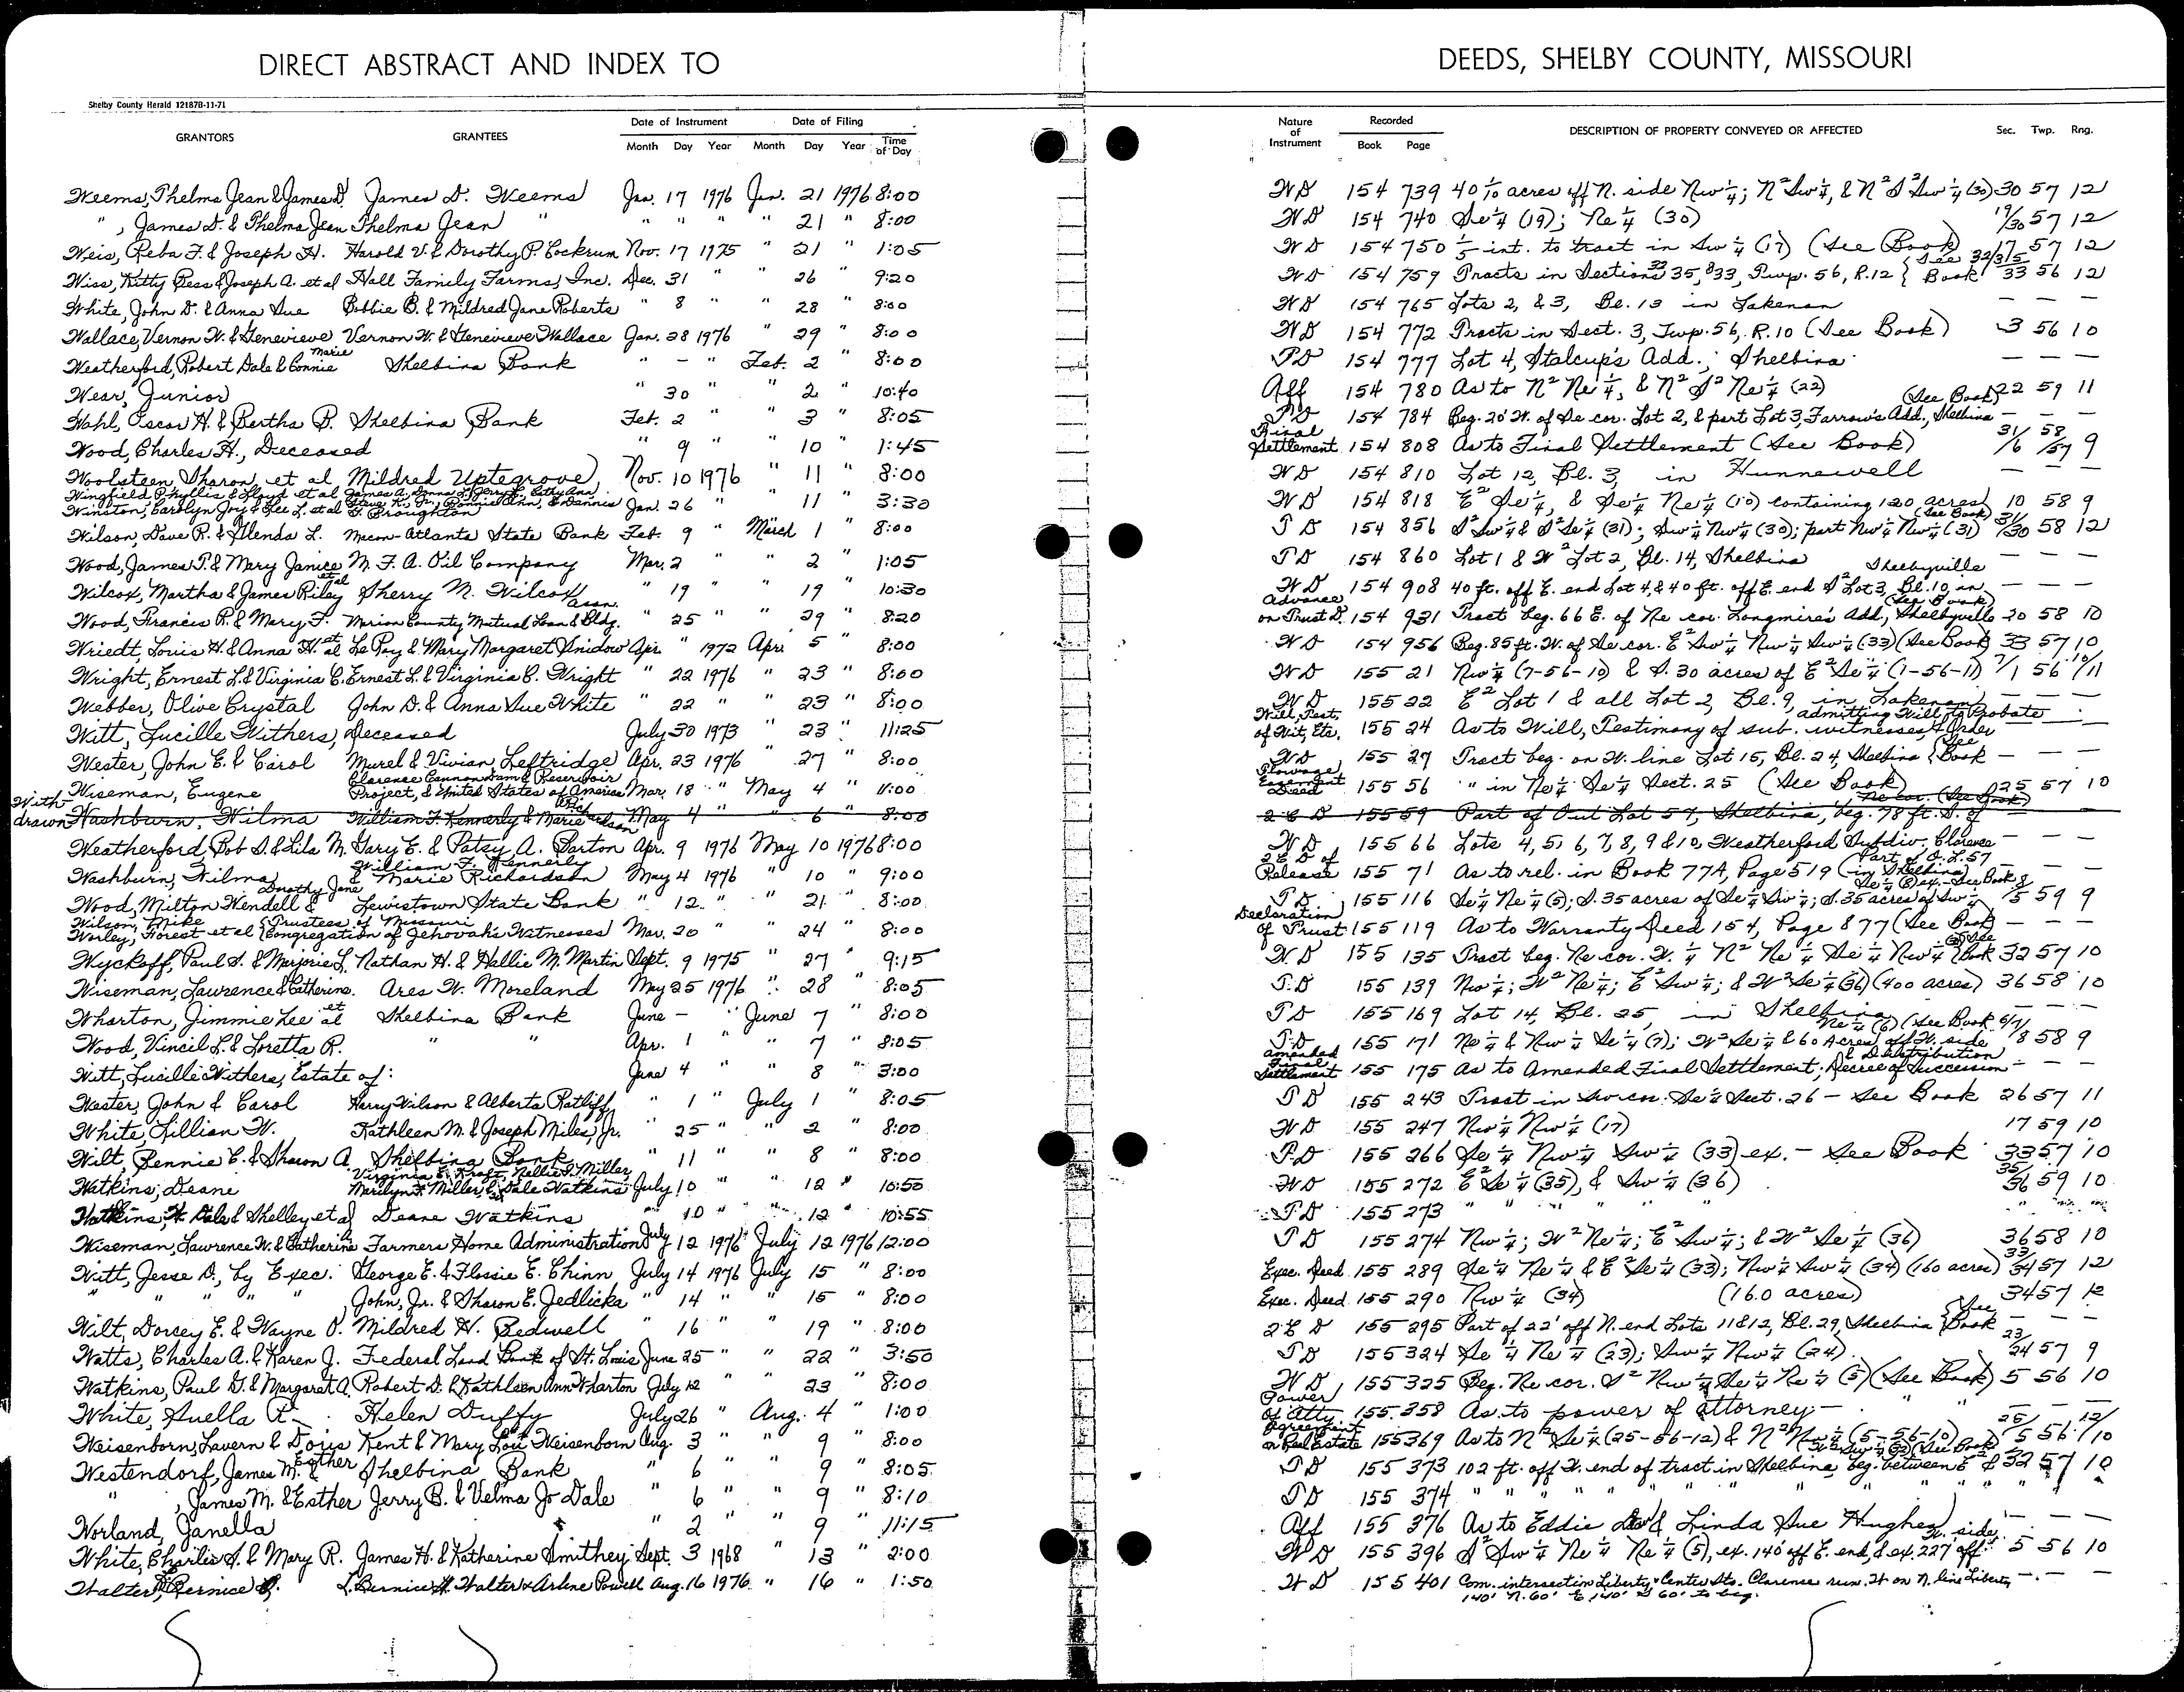 DIRECT ABSTRACT AND INDEX TO
Shelby County Herald 12187B-11-71
GRANTORS GRANTEES Date of Instrument Date of Filing
Month Day Year Month Day Year Time of Day
Weems, Thelma Jean & James D. James D. Weems Jan. 17 1976 Jan. 21 1976 8:00
" , James D. & Thelma Jean Thelma Jean " " " " " 21 " 8:00
Weis, Reba F. & Joseph H. Harold V. & Dorothy P. Cockrum Nov. 17 1975 " 21 " 1:05
Wiss, Kitty Bess & Joseph A. et al Hall Family Farms, Inc. Dec. 31 " " 26 " 9:20
White, John D. & Anna Sue Bobbie B. & Mildred Jane Roberts " 8 " " 28 " 8:00
Wallace, Vernon W. & Genevieve Vernon W. & Genevieve Wallace Jan. 28 1976 " 29 " 8:00
Weatherford, Robert Dale & Connie Marie Shelbina Bank " - " Feb. 2 " 8:00
Wear, Junior " 30 " " 2 " 10:40
Wahl, Oscar H. & Bertha B. Shelbina Bank Feb. 2 " " 3 " 8:05
Wood, Charles H., Deceased " 9 " " 10 " 1:45
Woolsteen, Sharon, et al Mildred Uptegrove Nov. 10 1976 " 11 " 8:00
Wingfield, Phyllis & Lloyd et al James A., Donna L., Jerry L., Cathy Ann
Winston, Carolyn Joy & Lee L. et al Steve K., Jr., Connie Ann, & Dennis F. Broughton Jan. 26 " " 11 " 3:30
Wilson, Dave R. & Glenda L. Macon-Atlanta State Bank Feb. 9 " March 1 " 8:00
Wood, James T. & Mary Janice M. F. A. Oil Company Mar. 2 " " 2 " 1:05
Wilcox, Martha & James Riley et al Sherry M. Wilcox " 19 " " 19 " 10:30
Wood, Francis R. & Mary F. Marion County Mutual Loan & Bldg. Assn. " 25 " " 29 " 8:20
Wriedt, Louis H. & Anna H. et al Le Roy & Mary Margaret Snidow Apr. " 1972 Apr. 5 " 8:00
Wright, Ernest L. & Virginia C. Ernest L. & Virginia C. Wright " 22 1976 " 23 " 8:00
Webber, Olive Crystal John D. & Anna Sue White " 22 " " 23 " 8:00
Witt, Lucille Withers, Deceased July 30 1973 " 23 " 11:25
Wester, John E. & Carol Murel & Vivian Leftridge Apr. 23 1976 " 27 " 8:00
Wiseman, Eugene Clarence Cannon Dam & Reservoir Project, & United States of America Mar. 18 " May 4 " 11:00
With-drawn Washburn, Wilma William F. Kennerly & Marie Richardson May 4 " " 6 " 8:00
Weatherford, Bob D. & Lila M. Gary E. & Patsy A. Barton Apr. 9 1976 May 10 1976 8:00
Washburn, Wilma William F. Kennerly & Marie Richardson May 4 1976 " 10 " 9:00
Wood, Milton Wendell & Dorothy Jane Lewistown State Bank " 12 " " 21 " 8:00
Wilson, Mike
Worley, Forest et al (Trustees of Missouri Congregation of Jehovah's Witnesses) Mar. 20 " " 24 " 8:00
Wyckoff, Paul S. & Marjorie L. Nathan H. & Hallie M. Martin Sept. 9 1975 " 27 " 9:15
Wiseman, Lawrence & Catherine Ares W. Moreland May 25 1976 " 28 " 8:05
Wharton, Jimmie Lee et al Shelbina Bank June - " June 7 " 8:00
Wood, Vincil L. & Loretta R. " " Apr. 1 " " 7 " 8:05
Witt, Lucille Withers, Estate of: June 4 " " 8 " 3:00
Wester, John & Carol Harry Wilson & Alberta Ratliff " 1 " July 1 " 8:05
White, Lillian W. Kathleen M. & Joseph Miles, Jr. " 25 " " 2 " 8:00
Wilt, Bennie C. & Sharon A. Shelbina Bank " 11 " " 8 " 8:00
Watkins, Deane Virginia E. Kraft, Nellie F. Miller, Marilyn F. Miller, & Dale Watkins July 10 " " 12 " 10:50
Watkins, W. Dale & Shelley et al Deane Watkins " 10 " " 12 " 10:55
Wiseman, Lawrence W. & Catherine Farmers Home Administration July 12 1976 July 12 1976 12:00
Witt, Jesse D., by Exec. George E. & Flossie E. Chinn July 14 1976 July 15 " 8:00
" " " " " John, Jr. & Sharon E. Jedlicka " 14 " " 15 " 8:00
Wilt, Dorcey E. & Wayne O. Mildred H. Bedwell " 16 " " 19 " 8:00
Watts, Charles A. & Karen J. Federal Land Bank of St. Louis June 25 " " 22 " 3:50
Watkins, Paul G. & Margaret A. Robert D. & Kathleen Ann Wharton July 12 " 23 " 8:00
White, Suella R. Helen Duffy July 26 " Aug. 4 " 1:00
Weisenborn, Lavern & Doris Kent & Mary Lou Weisenborn Aug. 3 " " 9 " 8:00
Westendorf, James M. & Esther Shelbina Bank " 6 " " 9 " 8:05
" , James M. & Esther Jerry B. & Velma Jo Dale " 6 " " 9 " 8:10
Worland, Janella " 2 " " 9 " 11:15
White, Charlie S. & Mary R. James H. & Katherine Smithey Sept. 3 1968 " 13 " 2:00
Walter, Bernice L. Bernice H. Walter & Arlene Powell Aug. 16 1976 " 16 " 1:50
DEEDS, SHELBY COUNTY, MISSOURI
Nature of Instrument Recorded DESCRIPTION OF PROPERTY CONVEYED OR AFFECTED Sec. Twp. Rng.
Book Page
WD 154 739 40 1/10 acres off N. side Nw¼; N²Sw¼, & N²S²Sw¼ (30) 30 57 12
WD 154 740 Se¼ (19); Ne¼ (30) 19/30 57 12
WD 154 750 1/5 int. to tract in Sw¼ (17) (See Book) 17 57 12
WD 154 759 Tracts in Sections 32, 35, & 33, Twp. 56, R.12 {See Book 32/35/33 56 12
WD 154 765 Lots 2, & 3, Bl. 13 in Lakenan — — —
WD 154 772 Tracts in Sect. 3, Twp. 56, R. 10 (See Book) 3 56 10
TD 154 777 Lot 4, Stalcup's Add., Shelbina — — —
Aff 154 780 As to N² Ne¼, & N² S² Ne¼ (22) 22 59 11
TD 154 784 Beg. 20' W. of Se cor. Lot 2, & part Lot 3, Farrow's Add., Shelbina (See Book) — — —
Final Settlement 154 808 As to Final Settlement (See Book) 31/6 58/57 9
WD 154 810 Lot 12, Bl. 3, in Hunnewell — — —
WD 154 818 E² Se¼, & Se¼ Ne¼ (10) containing 120 acres 10 58 9
TD 154 856 S² Sw¼ & S² Se¼ (31); Sw¼ Nw¼ (30); part Nw¼ Nw¼ (31) (See Book) 31/30 58 12
TD 154 860 Lot 1 & W² Lot 2, Bl. 14, Shelbina — — —
WD 154 908 40 ft. off E. end Lot 4, & 40 ft. off E. end S² Lot 3, Bl. 10, in Shelbyville — — —
Advance on Trust D. 154 931 Tract beg. 66 E. of Ne cor. Longmire's Add., Shelbyville (See Book) 20 58 10
WD 154 956 Beg. 85 ft. W. of Se cor. E² Sw¼ Nw¼ Sw¼ (33) (See Book) 33 57 10
WD 155 21 Nw¼ (7-56-10) & S. 30 acres of E² Se¼ (1-56-11) 7/1 56 10/11
WD 155 22 E² Lot 1 & all Lot 2, Bl. 9, in Lakenan — — —
Will, Test. of Wit, Etc. 155 24 As to Will, Testimony of sub. witnesses & Order admitting Will to Probate — —
WD 155 27 Tract beg. on W. line Lot 15, Bl. 24, Shelbina {See Book — — —
Flowage Easement Deed 155 56 " in Ne¼ Se¼ Sect. 25 (See Book) 25 57 10
2 E D 155 59 Part of Out Lot 57, Shelbina, beg. 78 ft. S. of Ne cor. (See Book)
WD 155 66 Lots 4, 5, 6, 7, 8, 9 & 10, Weatherford Subdiv. Clarence — — —
2 E D of Release 155 71 As to rel. in Book 774, Page 519 (Part of O.L. 57 in Shelbina) — — —
TD 155 116 Se¼ Ne¼ (5); S. 35 acres of Se¼ Sw¼; S. 35 acres of Sw¼ Se¼ ex. - See Book 5 59 9
Declaration of Trust 155 119 As to Warranty Deed 154, Page 877 (See Book) — — —
WD 155 135 Tract beg. Ne cor. W.¼ N² Ne¼ Se¼ Nw¼ {See Book 32 57 10
TD 155 139 Nw¼; W² Ne¼; E² Sw¼; & W² Se¼ (36) (400 acres) 36 58 10
TD 155 169 Lot 14, Bl. 25, in Shelbina — — —
TD 155 171 Ne¼ & Nw¼ Se¼ (7); W² Se¼ & 60 Acres off W. side Ne¼ (6) (See Book) 6/7/8 58 9
Amended Final Settlement 155 175 As to Amended Final Settlement; Decree of Succession & Distribution — — —
TD 155 243 Tract in Sw cor. Se¼ Sect. 26 - See Book 26 57 11
WD 155 247 Nw¼ Nw¼ (17) 17 59 10
TD 155 266 Se¼ Nw¼ Sw¼ (33) ex. - See Book 33 57 10
WD 155 272 E² Se¼ (35), & Sw¼ (36) 35/36 59 10
TD 155 273 " " " " " " " "
TD 155 274 Nw¼; W² Ne¼; E² Sw¼; & W² Se¼ (36) 36 58 10
Exec. Deed 155 289 Se¼ Ne¼ & E² Se¼ (33); Nw¼ Sw¼ (34) (160 acres) 33/34 57 12
Exec. Deed 155 290 Nw¼ (34) (160 acres) 34 57 12
2 E D 155 295 Part of 22' off N. end Lots 11 & 12, Bl. 29, Shelbina {See Book — — —
TD 155 324 Se¼ Ne¼ (23); Sw¼ Nw¼ (24) 23/24 57 9
WD 155 325 Beg. Ne cor. S² Nw¼ Se¼ Ne¼ (5) (See Book) 5 56 10
Power of Atty. 155 358 As to power of attorney — — —
Agreement on Real Estate 155 369 As to N² Se¼ (25-56-12) & N² Nw¼ (5-56-10) 25/5 56 12/10
TD 155 373 102 ft. off W. end of tract in Shelbina, beg. between E² & W² Sw¼ (32) (See Book) 32 57 10
TD 155 374 " " " " " " " " " "
Aff 155 376 As to Eddie & Linda Sue Hughes — — —
WD 155 396 S² Sw¼ Ne¼ Ne¼ (5), ex. 140' off E. end, & ex. 227' off W. side 5 56 10
WD 155 401 Com. intersection Liberty & Center Sts. Clarence run. W on N. line Liberty — — —
140' N. 60' E. 140' S 60' to beg.